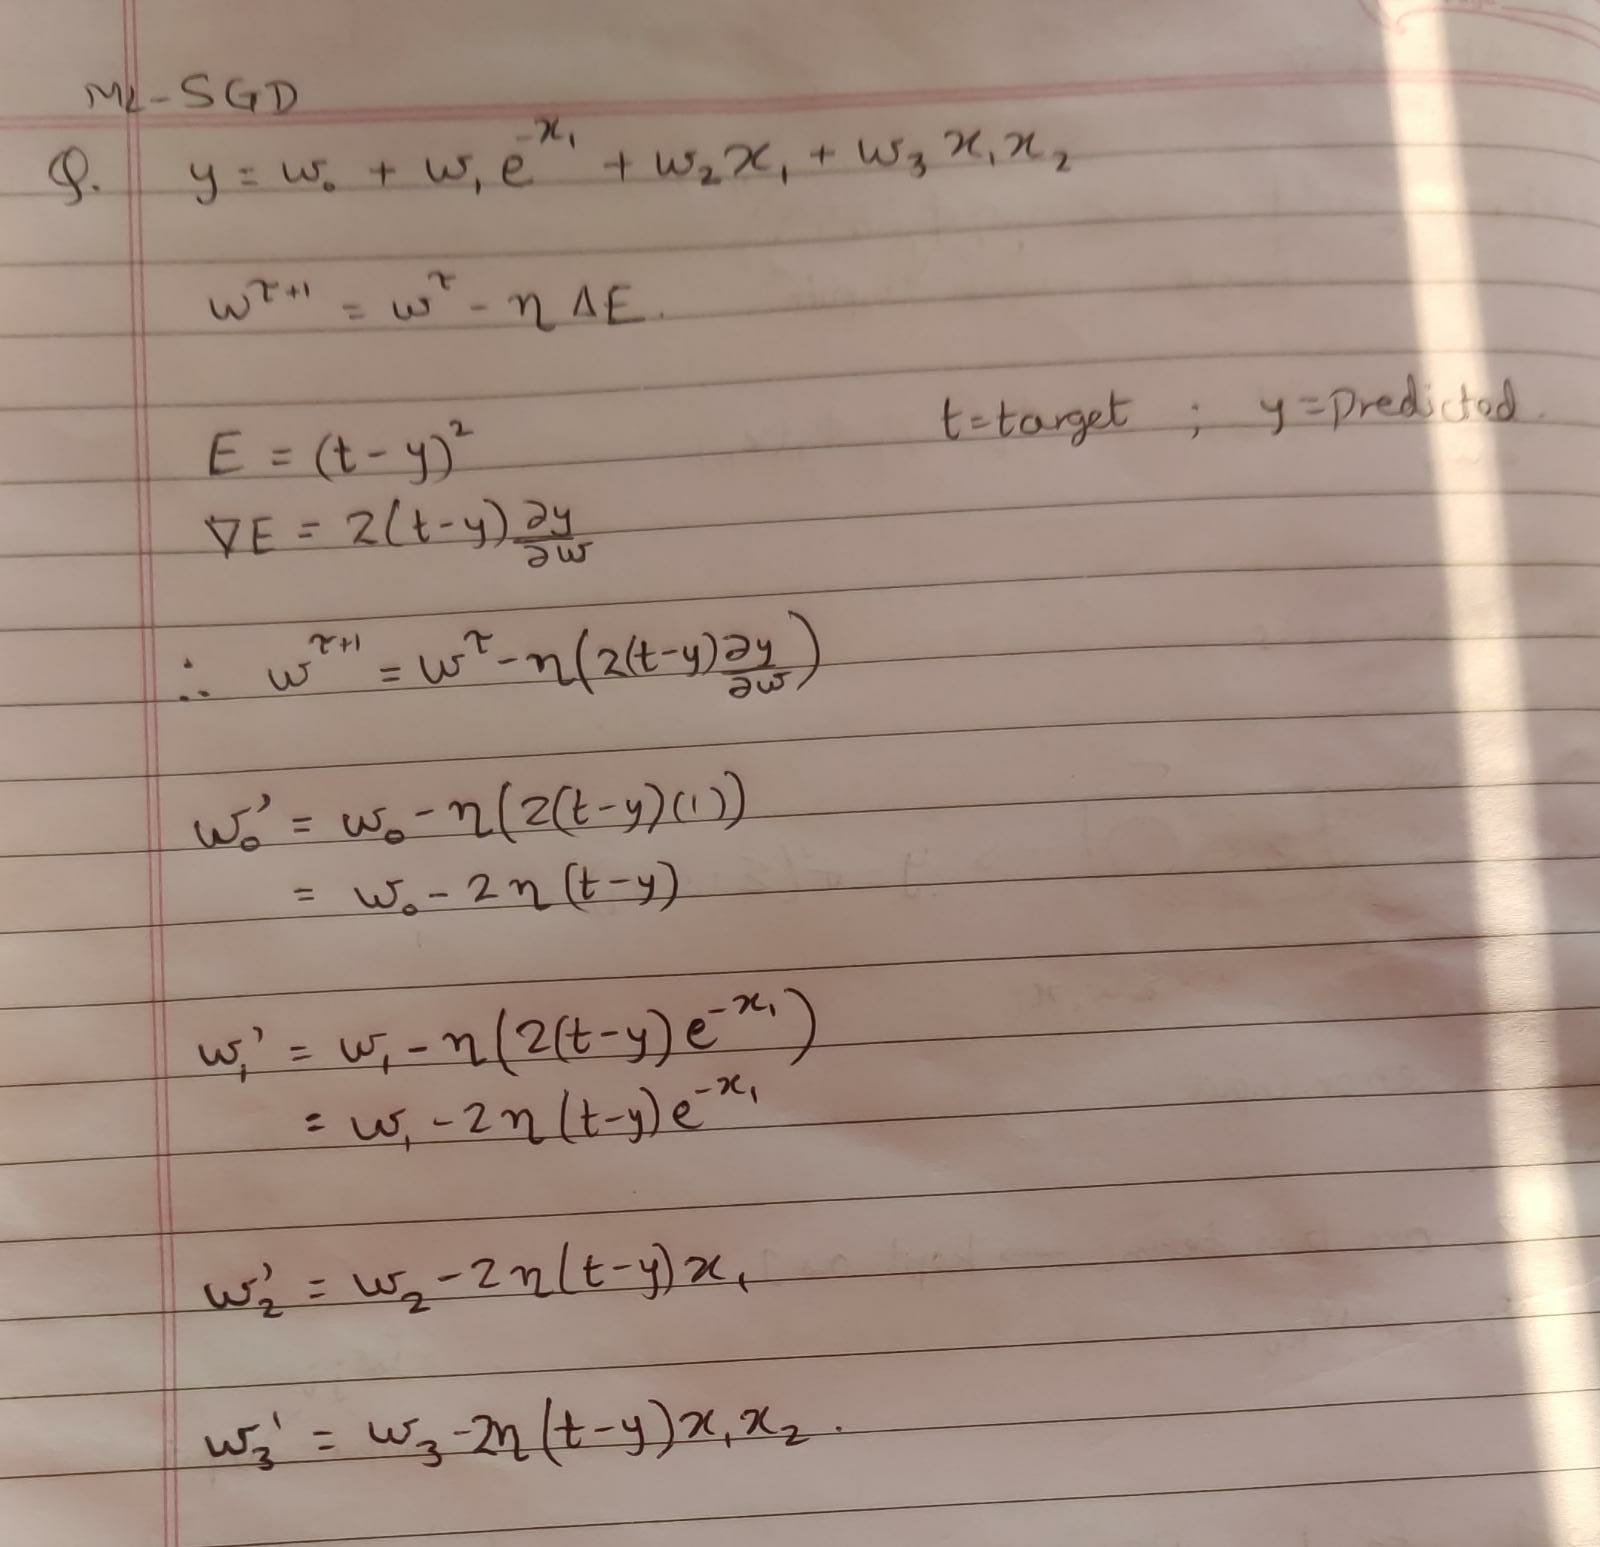 ML-SGD
Q. y = w₀ + w₁e^{-x₁} + w₂x₁ + w₃x₁x₂
w^{τ+1} = w^τ - η ΔE.
t=target ; y=Predicted.
E = (t-y)²
∇E = 2(t-y) ∂y/∂w
∴ w^{τ+1} = w^τ - η(2(t-y) ∂y/∂w)
w₀' = w₀ - η(2(t-y)(1))
= w₀ - 2η(t-y)
w₁' = w₁ - η(2(t-y)e^{-x₁})
= w₁ - 2η(t-y)e^{-x₁}
w₂' = w₂ - 2η(t-y)x₁
w₃' = w₃ - 2η(t-y)x₁x₂.